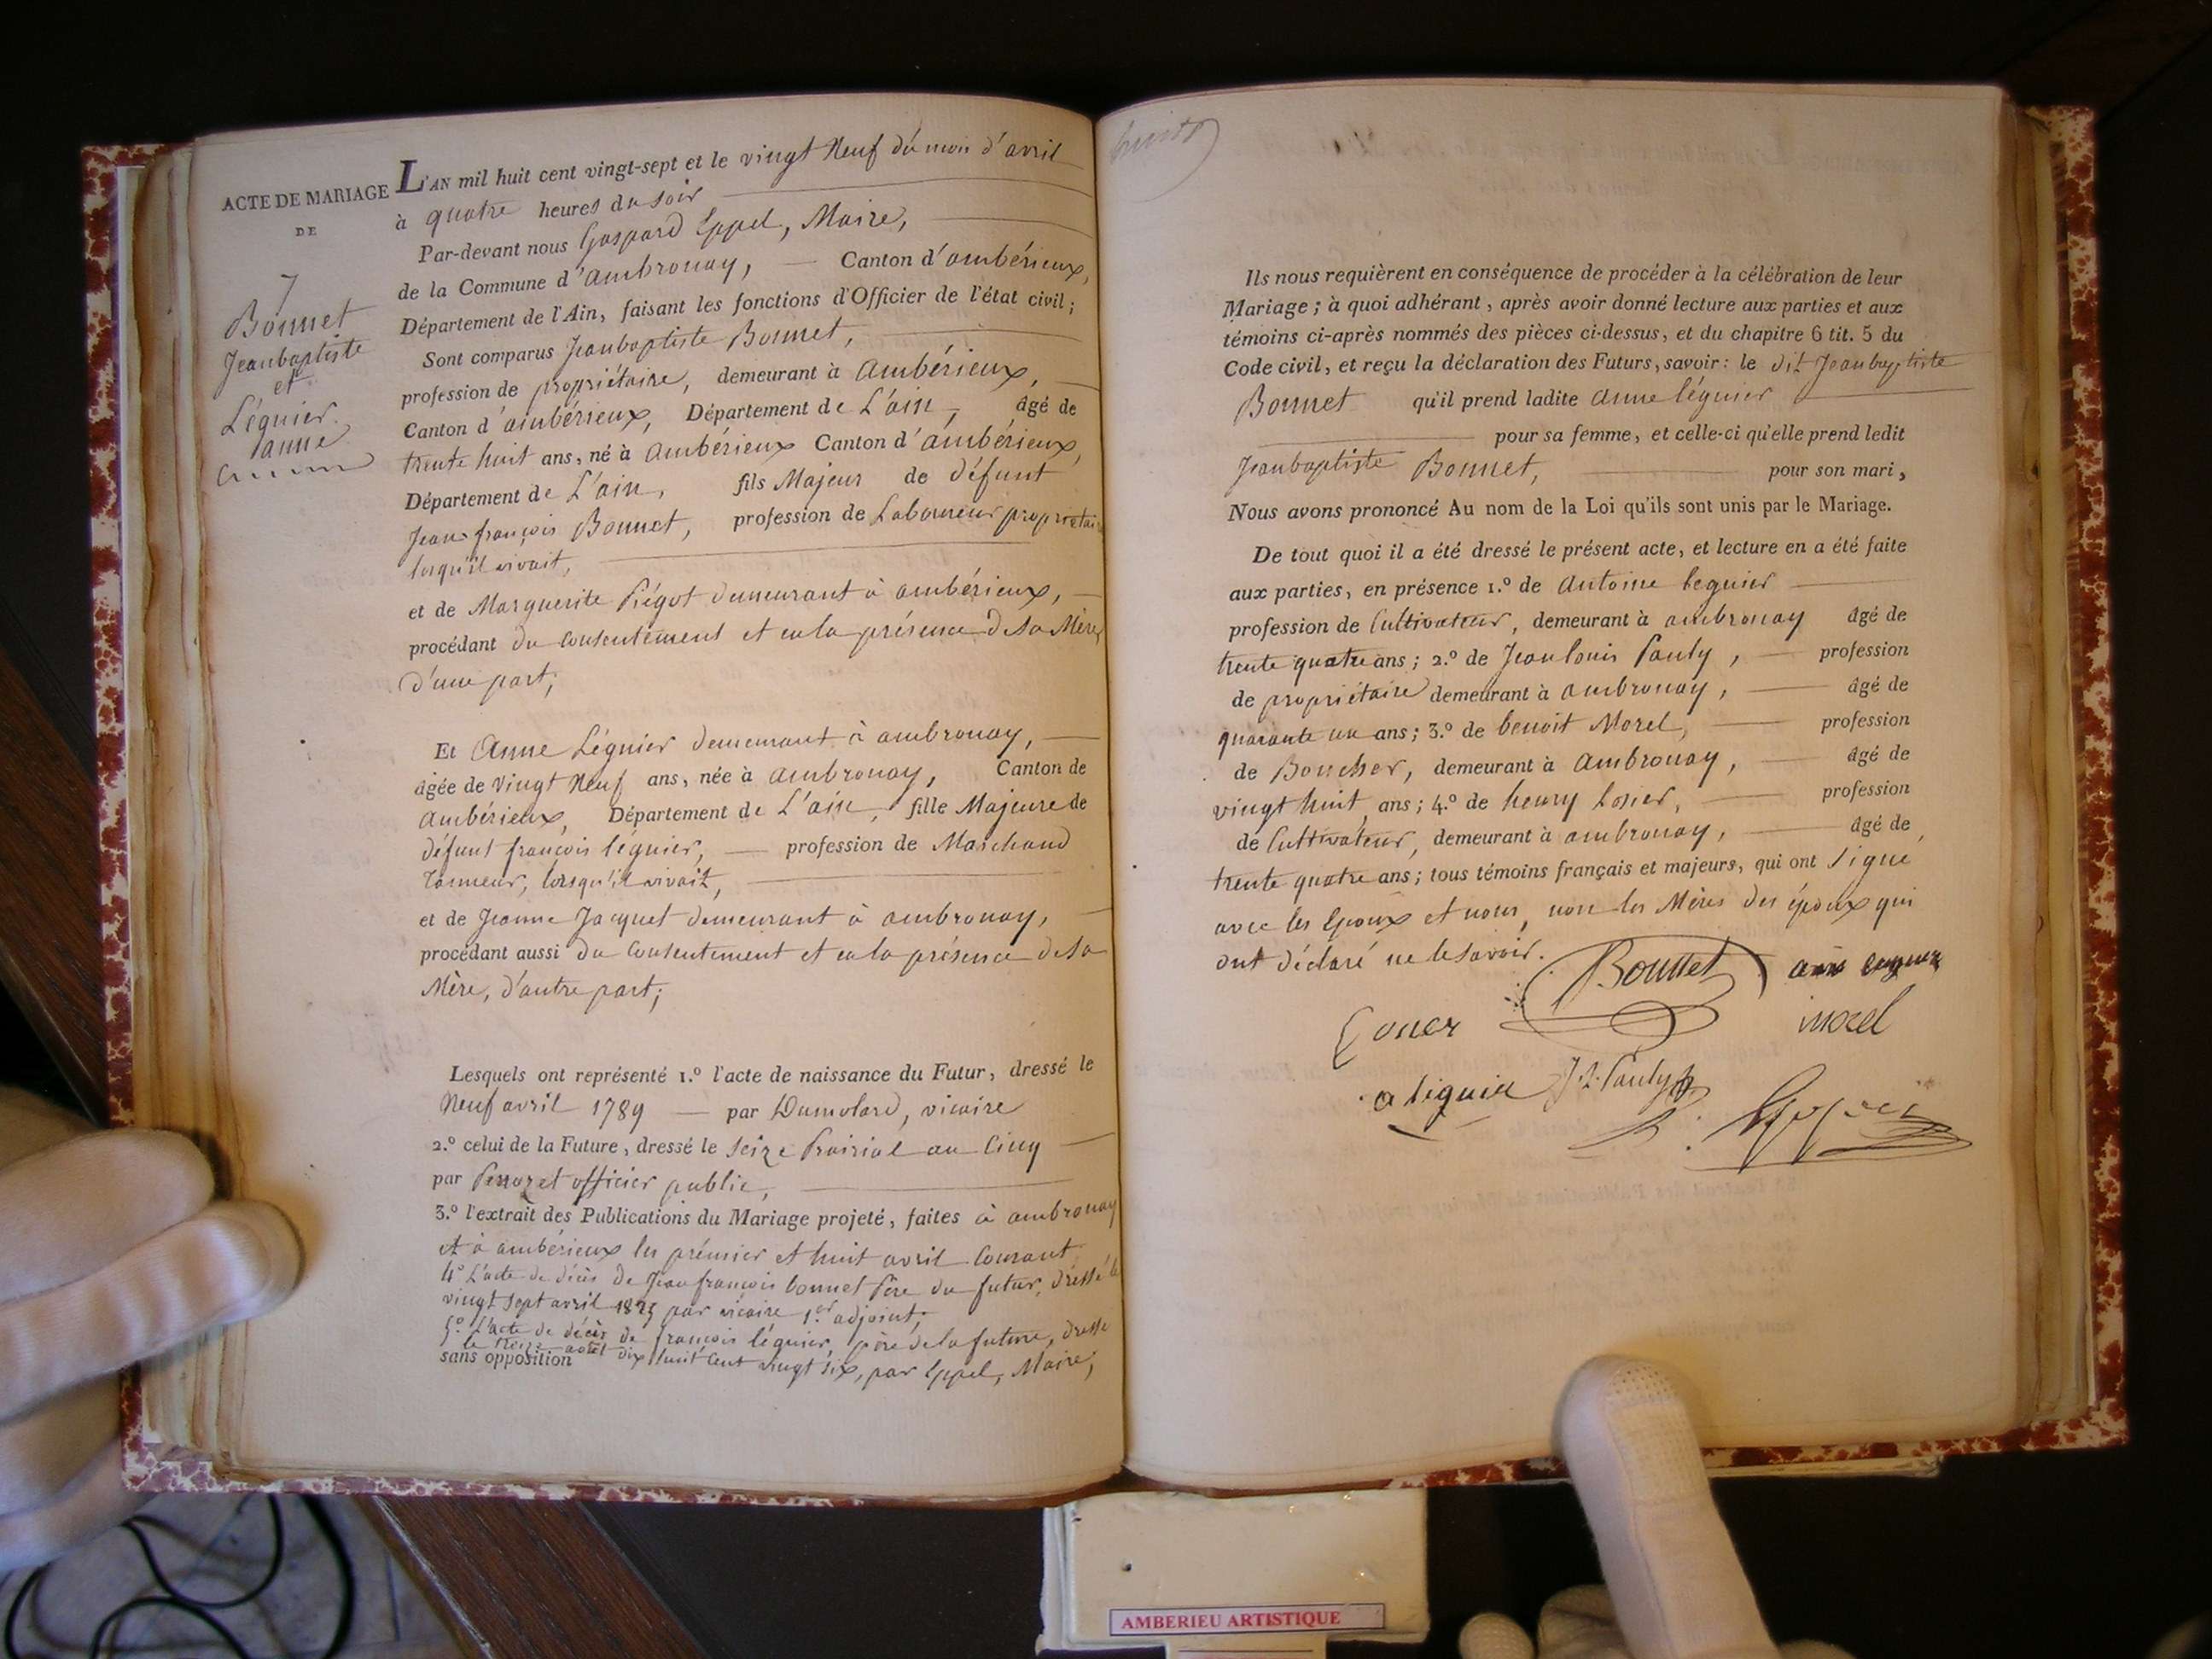 ACTE DE MARIAGE
DE
7
Bonnet
Jeanbaptiste
et
Léguier
anne
L'AN mil huit cent vingt-sept et le vingt Neuf du mois d'avril
à quatre heures du soir
Par-devant nous Gaspard Eppel, Maire,
de la Commune d'ambronay, Canton d'ambérieux,
Département de l'Ain, faisant les fonctions d'Officier de l'état civil;
Sont comparus Jeanbaptiste Bonnet,
profession de propriétaire, demeurant à Ambérieux,
Canton d'ambérieux, Département de L'ain, âgé de
trente huit ans, né à Ambérieux Canton d'ambérieux,
Département de L'ain, fils Majeur de défunt
Jean françois Bonnet, profession de Laboureur propriétaire
lorsqu'il vivait,
et de Marguerite demeurant à ambérieux,
procédant du consentement et en la présence de sa Mère,
d'une part;
Et Anne Léguier demeurant à ambronay,
âgée de vingt Neuf ans, née à ambronay, Canton de
Ambérieux, Département de L'ain, fille Majeure de
défunt françois léguier, profession de Marchand
Tanneur, lorsqu'il vivait,
et de Jeanne Jacquet demeurant à ambronay,
procédant aussi du Consentement et en la présence de sa
Mère, d'autre part;
Lesquels ont représenté 1.º l'acte de naissance du Futur, dressé le
Neuf avril 1789 par Dumolard, vicaire
2.º celui de la Future, dressé le seize Prairial an Cinq
par officier public,
3.º l'extrait des Publications du Mariage projeté, faites à ambronay
et à ambérieux les prémier et huit avril Courant
4º L'acte de décès de Jean françois bonnet Père du futur, dressé le
vingt sept avril par vicaire 1.er adjoint,
5º L'acte de décès de françois léguier, père de la future, dressé
le août dix huit cent vingt six, par Eppel, Maire;
sans opposition
Ils nous requièrent en conséquence de procéder à la célébration de leur
Mariage; à quoi adhérant, après avoir donné lecture aux parties et aux
témoins ci-après nommés des pièces ci-dessus, et du chapitre 6 tit. 5 du
Code civil, et reçu la déclaration des Futurs, savoir: le dit Jeanbaptiste
Bonnet qu'il prend ladite Anne léguier
pour sa femme, et celle-ci qu'elle prend ledit
Jeanbaptiste Bonnet, pour son mari,
Nous avons prononcé Au nom de la Loi qu'ils sont unis par le Mariage.
De tout quoi il a été dressé le présent acte, et lecture en a été faite
aux parties, en présence 1.º de Antoine leguier
profession de Cultivateur, demeurant à ambronay âgé de
trente quatre ans; 2.º de Jeanlouis Pauly, profession
de propriétaire demeurant à ambronay, âgé de
quarante un ans; 3.º de benoit Morel, profession
de Boucher, demeurant à Ambronay, âgé de
vingt huit ans; 4.º de henry profession
de Cultivateur, demeurant à ambronay, âgé de
trente quatre ans; tous témoins français et majeurs, qui ont signé
avec les Epoux et nous, non les Mères des époux qui
ont déclaré ne le savoir.
Bonnet
morel
a léguier J.L. Pauly
AMBERIEU ARTISTIQUE